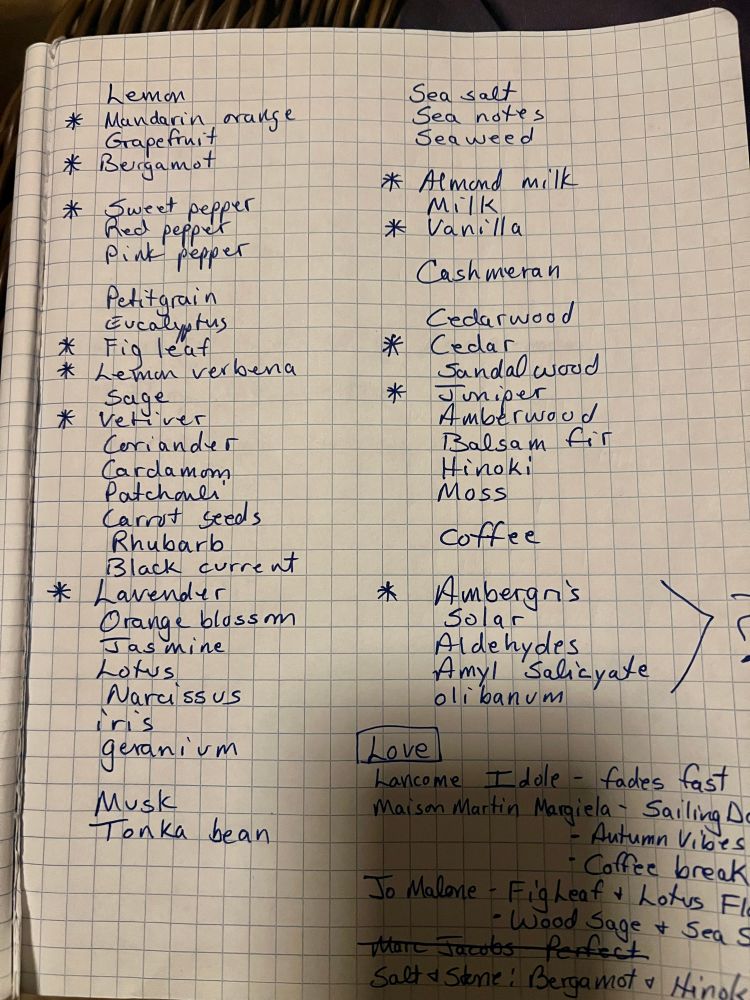 Lemon
* Mandarin orange
Grapefruit
* Bergamot
* Sweet pepper
Red pepper
Pink pepper
Petitgrain
Eucalyptus
* Fig leaf
* Lemon verbena
Sage
* Vetiver
Coriander
Cardamom
Patchouli
Carrot seeds
Rhubarb
Black current
* Lavender
Orange blossom
Jasmine
Lotus
Narcissus
iris
geranium
Musk
Tonka bean
Sea salt
Sea notes
Seaweed
* Almond milk
Milk
* Vanilla
Cashmeran
Cedarwood
* Cedar
Sandalwood
* Juniper
Amberwood
Balsam fir
Hinoki
Moss
Coffee
* Ambergris
Solar
Aldehydes
Amyl Salicyate
olibanum
Love
Lancome Idole - fades fast
Maison Martin Margiela - Sailing
- Autumn Vibes
- Coffee break
Jo Malone - Fig Leaf + Lotus
- Wood Sage + Sea
Marc Jacobs Perfect
Salt & Stone: Bergamot +